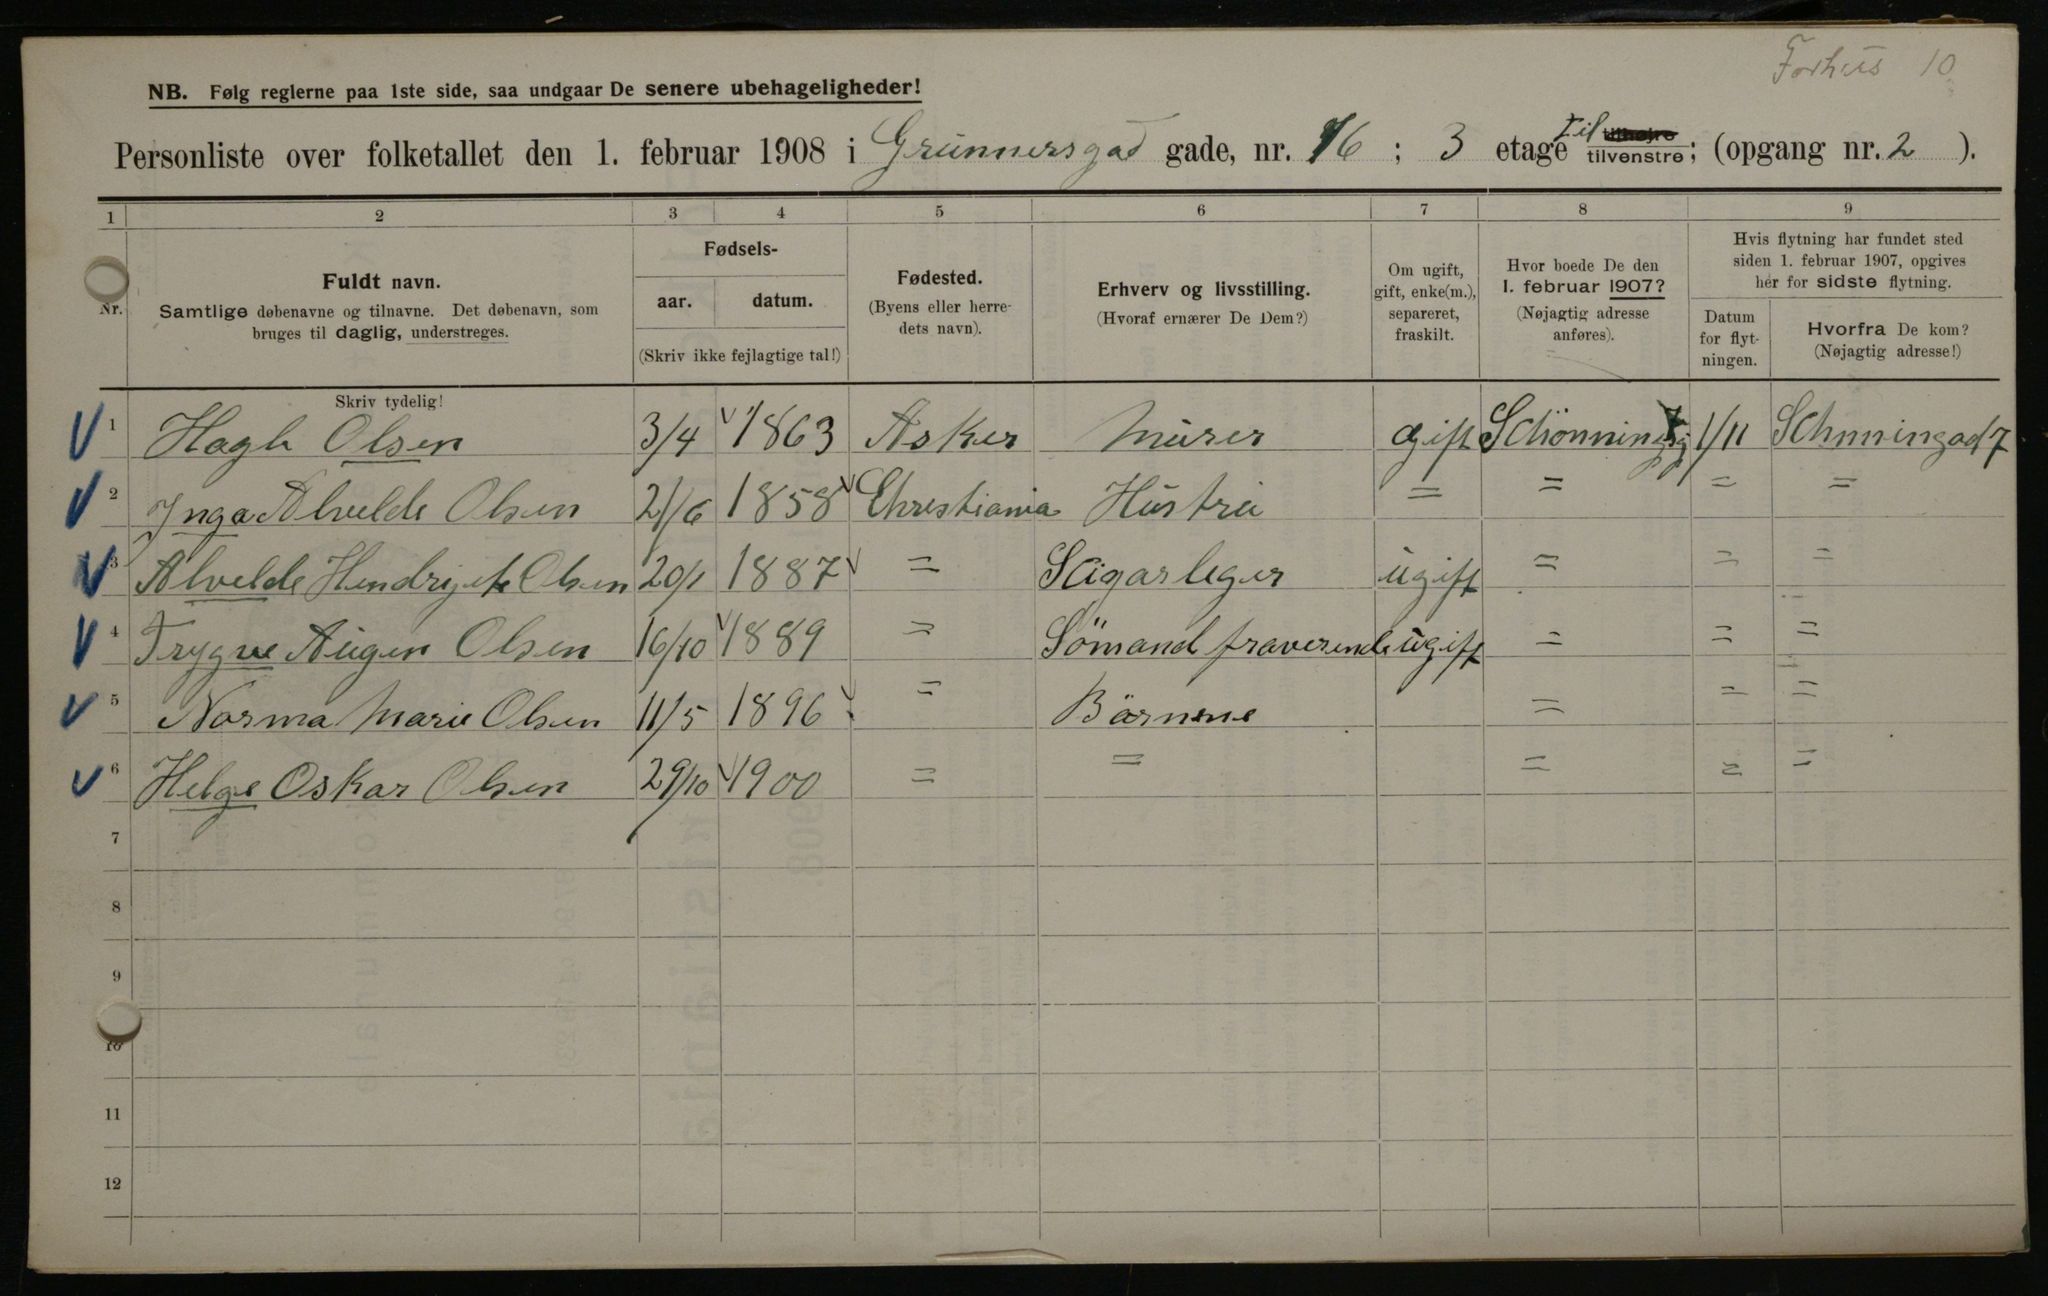 Forhus 10
NB. Følg reglerne paa 1ste side, saa undgaar De senere ubehageligheder!
Personliste over folketallet den 1. februar 1908 i Grünnersgad gade, nr. 76 ; 3 etage til tilhøjre tilvenstre; (opgang nr. 2 ).
1 2 3 4 5 6 7 8 9
Nr.
Fuldt navn.
Samtlige døbenavne og tilnavne. Det døbenavn, som
bruges til daglig, understreges.
Skriv tydelig!
Fødsels-
aar. datum.
(Skriv ikke fejlagtige tal!)
Fødested.
(Byens eller herre-
dets navn).
Erhverv og livsstilling.
(Hvoraf ernærer De Dem?)
Om ugift,
gift, enke(m.),
separeret,
fraskilt.
Hvor boede De den
1. februar 1907?
(Nøjagtig adresse
anføres).
Hvis flytning har fundet sted
siden 1. februar 1907, opgives
her for sidste flytning.
Datum
for flyt-
ningen.
Hvorfra De kom?
(Nøjagtig adresse!)
1 Olsen 3/4 1863 Asker Mürer gift 1/11
2 Inga Alvelde Olsen 21/6 1858 Christiania Hüstrü = = = =
3 Alvelde Olsen 20/1 1887 = ügift = = =
4 Trygve Aügen Olsen 16/10 1889 = Sömand ügift = = =
5 Norma Marie Olsen 11/5 1896 = Börnene = = =
6 Helge Oskar Olsen 29/10 1900 = = = = =
7
8
9
10
11
12